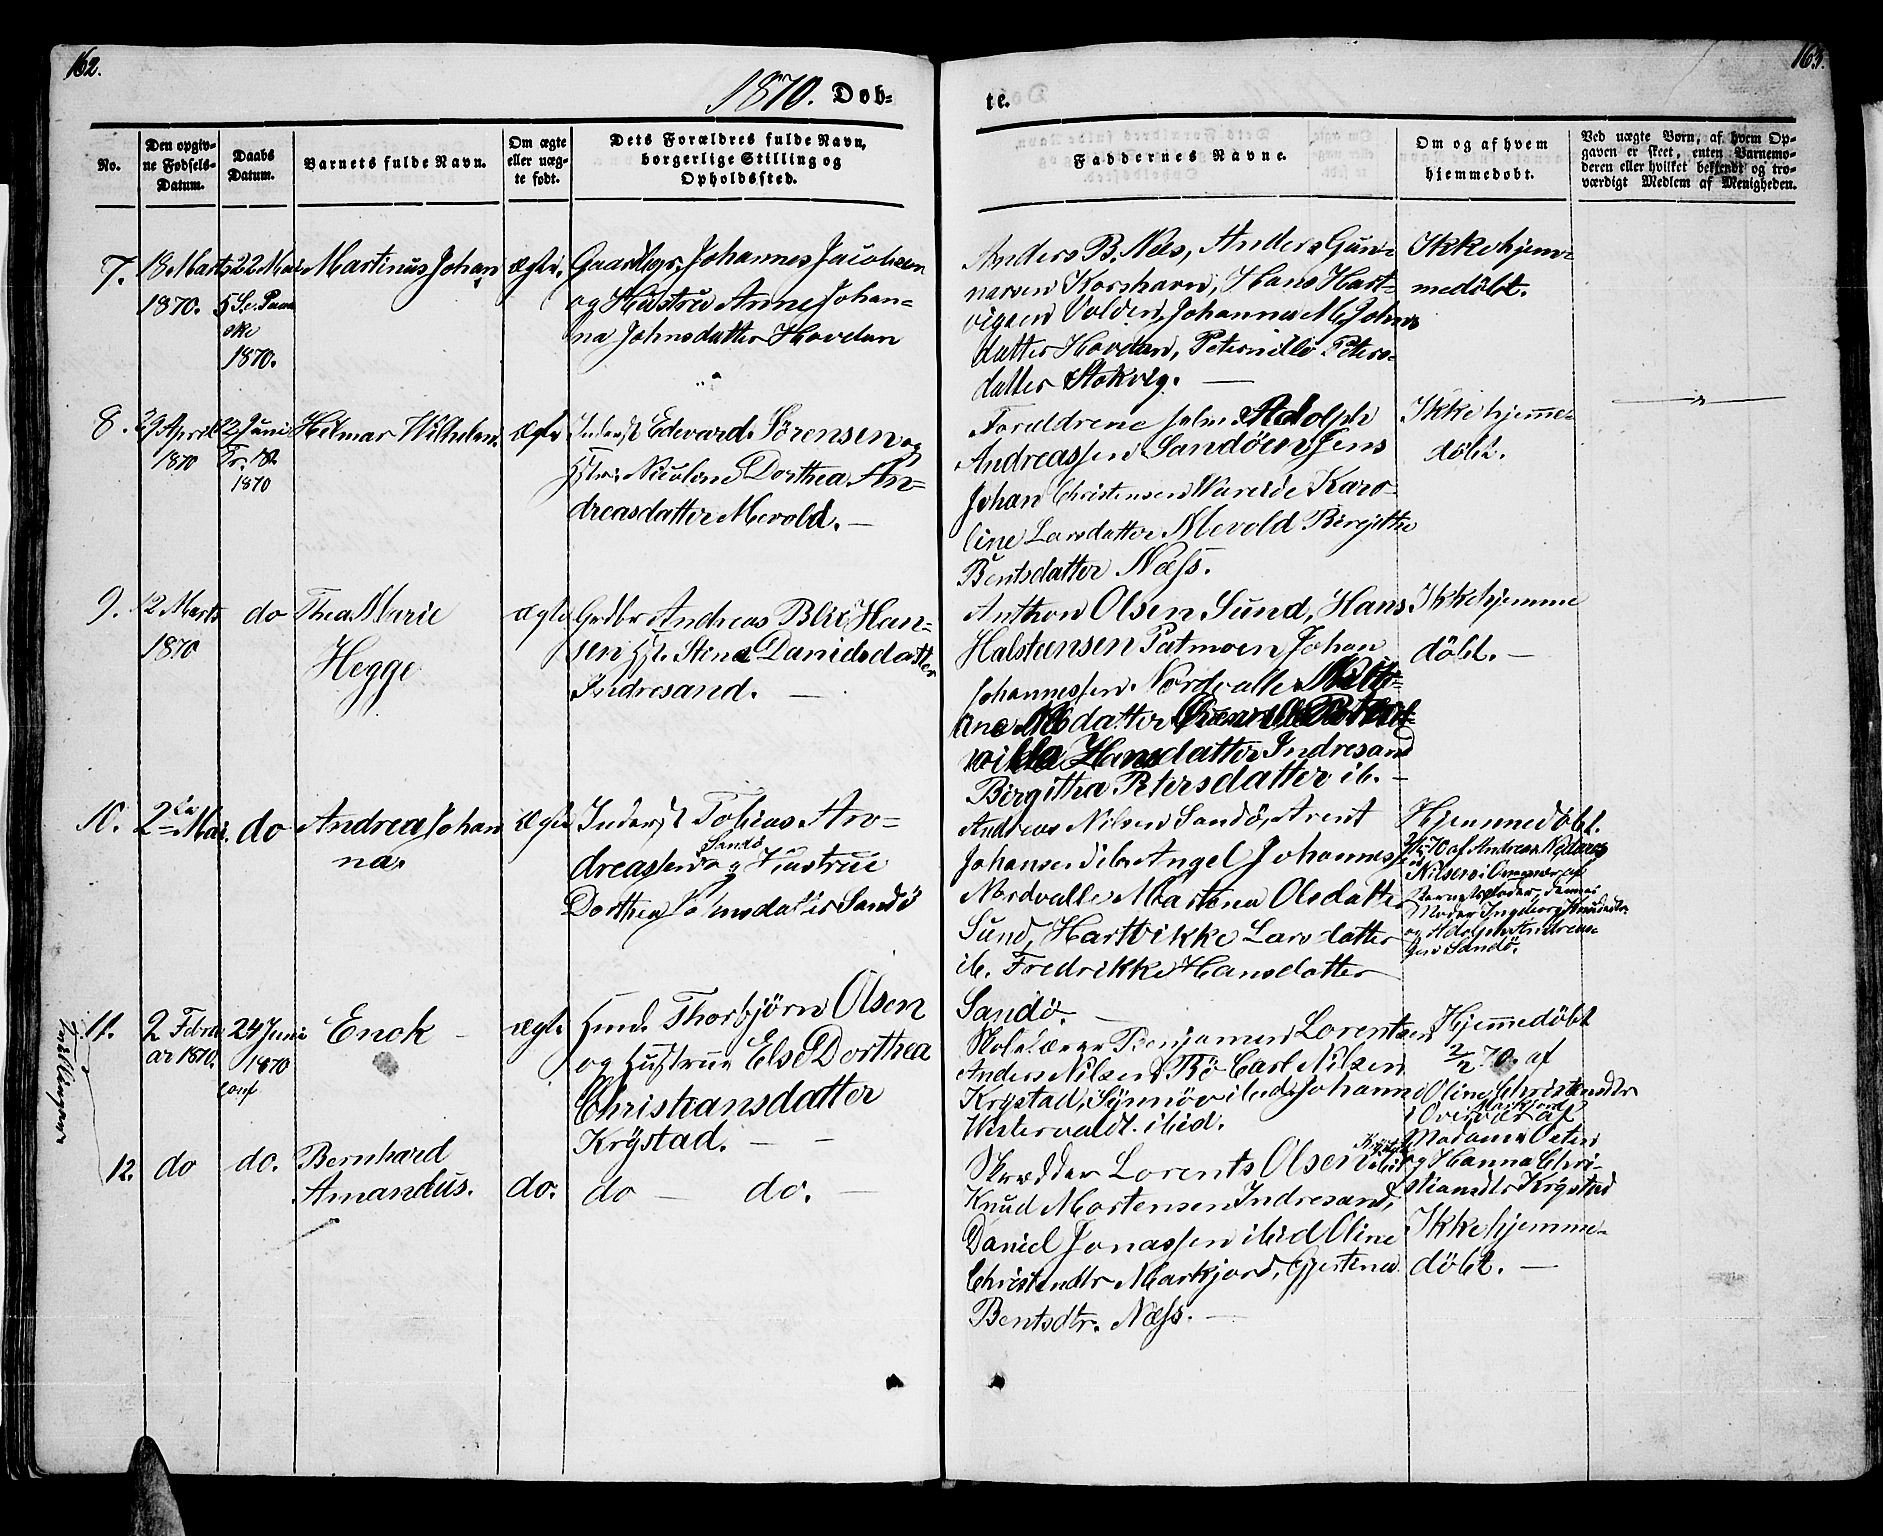 162.
163.
1870. Dob-
te.
No.
Den opgiv-
ne Fødsels-
Datum.
Daabs
Datum.
Barnets fulde Navn.
Om ægte
eller uæg-
te født.
Dets Forældres fulde Navn,
borgerlige Stilling og
Opholdssted.
Faddernes Navne.
Om og af hvem
hjemmedøbt.
Ved uægte Børn, af hvem Op-
gaven er skeet, enten Barnemo-
deren eller hvilket bekjendt og tro-
værdigt Medlem af Menigheden.
7.
18 Marts
1870.
22 Mai
5 S. e. Paa
ske
1870.
Martinus Johan
ægte.
Gaardbgr. Johannes Jacobsen
og Hustru Anne Johan-
na Johnsdatter Hovden
Anders B. Næs, Anders Gun-
narsen Korshavn, Hans Hart-
vigsen Volden, Johanna M. Johns
datter Hovden, Peternille Peters-
datter Stokvig. —
Ikke hjem-
medøbt.
8.
29 April
1870
12 Juni
Tr. 
1870
Hilmar Wilhelm.
ægte
Inderst Edevard Sørensen og
Hstr. Nicoline Dorthea An-
dreasdatter Mevold. —
Foreldrene Adolph
Andreassen Sandöen Jens
Johan Christensen Karo-
line Larsdatter Mevold Birgitte
Bentsdatter Næss.
Ikke hjemme-
döbt.
9.
12 Marts
1870
do
Thea Marie
Hegge
ægte
Grdbr Andreas Blix Han-
sen Stina Danielsdatter
Indresand. —
Anthon Olsen Sund, Hans
Halsteensen Patmoen Johan
Johannessen Nordvalle
datter
Hansdatter Indresand
Birgitha Petersdatter ib. -
Ikke hjemme
döbt. —
10.
2den Mai.
do
Andrea Johan
na.
ægte
Inderst Tobias An-
Sandö
dreassen og Hustrue
Dorthea datter Sandö
Andreas Nilsen Sandö, Arent
Johansen ib. Angel Johannessen
Nordvalle Martina Olsdatter
Sund, Hartvikke Larsdatter
ib. Fredrikke Hansdatter
Sandö. —
Hjemmedöbt.
70 af Andreas
Nilsen af
Barnets Fader, dennes
Moder Ingeborg Knudsdtr
og Adolph Andreas-
sen Sandö.
Indskrevne
11.
2 Febru
ar 1870.
24 Juni
1870
conf
Enok —
ægte
Huusm. Thorbjörn Olsen
og Hustrue Else Dorthea
Christiansdatter
Krystad. — —
Skolelærer Benjamin Lorentsen
Anders Nilsen Bö Carl Nilsen
Krystad, Synnöv ibid, Johanna
Westervaldt. ibid.
Hjemmedöbt
2/2 70. af
Oline Christiansdtr
Markjord
Madame
og Hanna Chri-
stiansdtr Krystad
12.
do
do.
Bernhard
Amandus.
do.
do — do. —
Skrædder Lorents Olsen Krystad
Knud Mortensen Indresand,
Daniel Jonassen ibid Oline
Christiandtr Markjord, Gjertina
Bentsdtr. Næss. —
Ikke hjemme-
döbt. —